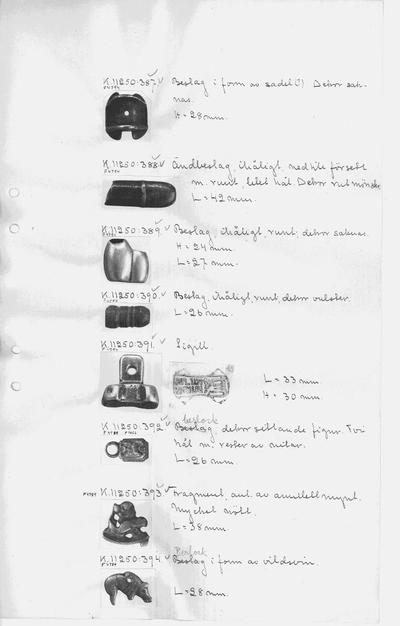 K.11250:387. Beslag i form av sadel(?) Dekor sak-
nas.
H = 28 mm.
K.11250:388. Ändbeslag, ihåligt, nedtill försett
m. runt, litet hål. Dekor
L = 42 mm.
K.11250:389. Beslag, ihåligt, runt; dekor saknas.
H = 24 mm.
L = 27 mm.
K.11250:390. Beslag, ihåligt, runt, dekor vulster.
L = 26 mm.
K.11250:391. Sigill.
L = 33 mm.
H = 30 mm.
berlock
K.11250:392. Beslag, dekor sittande figur. Två
hål m. rester av nitar.
L = 26 mm.
K.11250:393. Fragment, ant. av amulettmynt.
Mycket nött.
L = 38 mm.
Berlock
K.11250:394. Beslag i form av vildsvin.
L = 28 mm.